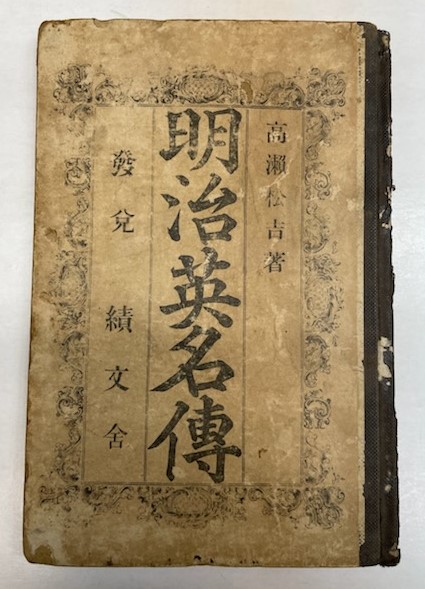 高瀬松吉著
明治英名傳
發兌 績文舍